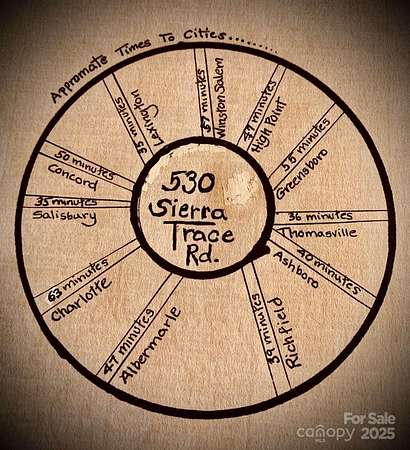 Appromate Times To Cities..........
57 minutes
Winston Salem
47 minutes
High Point
55 minutes
Greensboro
36 minutes
Thomasville
40 minutes
Ashboro
39 minutes
Richfield
47 minutes
Albermarle
63 minutes
Charlotte
35 minutes
Salisbury
50 minutes
Concord
35 minutes
Lexington
530
Sierra
Trace
Rd.
For Sale
canopy 2025
MLS